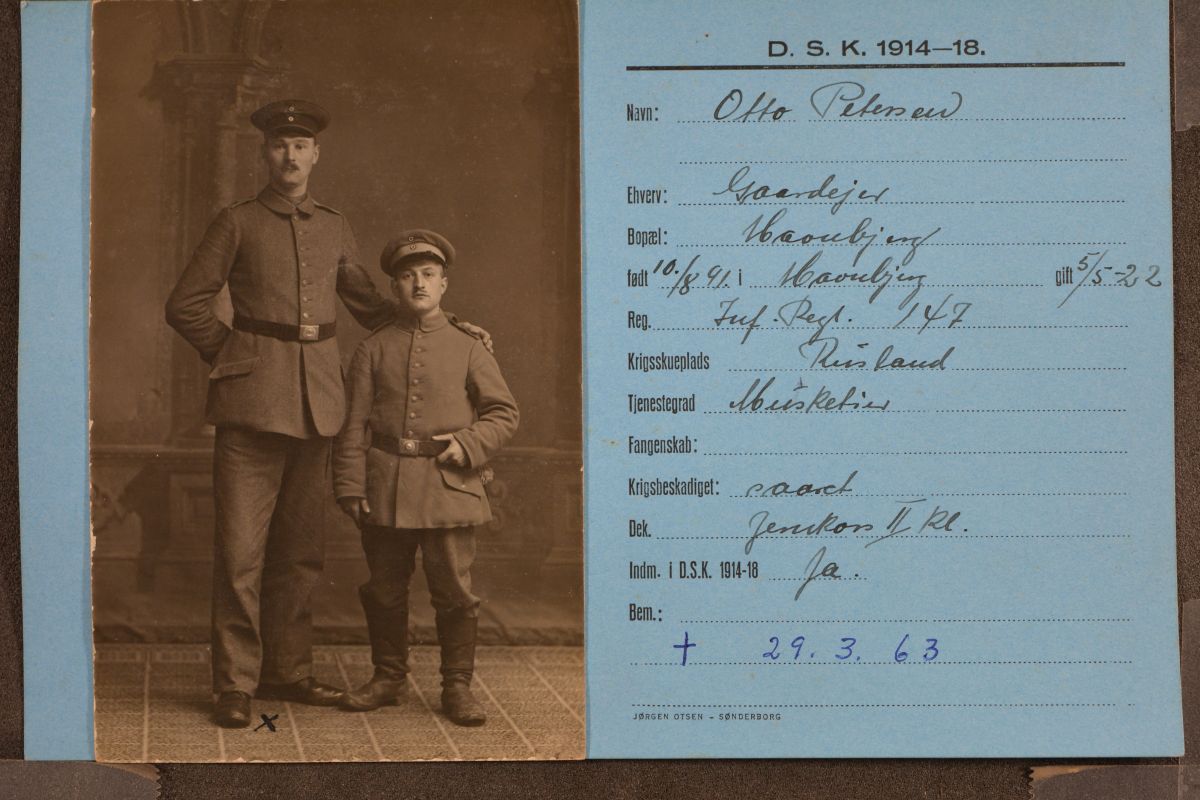 D. S. K. 1914—18.
Navn: Otto Petersen
Ehverv: Gaardejer
Bopæl: Havnbjerg
født 10./8 91. i Havnbjerg gift 5/5-22
Reg. Inf. Regt. 147
Krigsskueplads Rusland
Tjenestegrad Musketier
Fangenskab:
Krigsbeskadiget: saaret
Dek. Jernkors II Kl.
Indm. i D.S.K. 1914-18 Ja.
Bem.:
† 29. 3. 63
JØRGEN OTSEN – SØNDERBORG
x